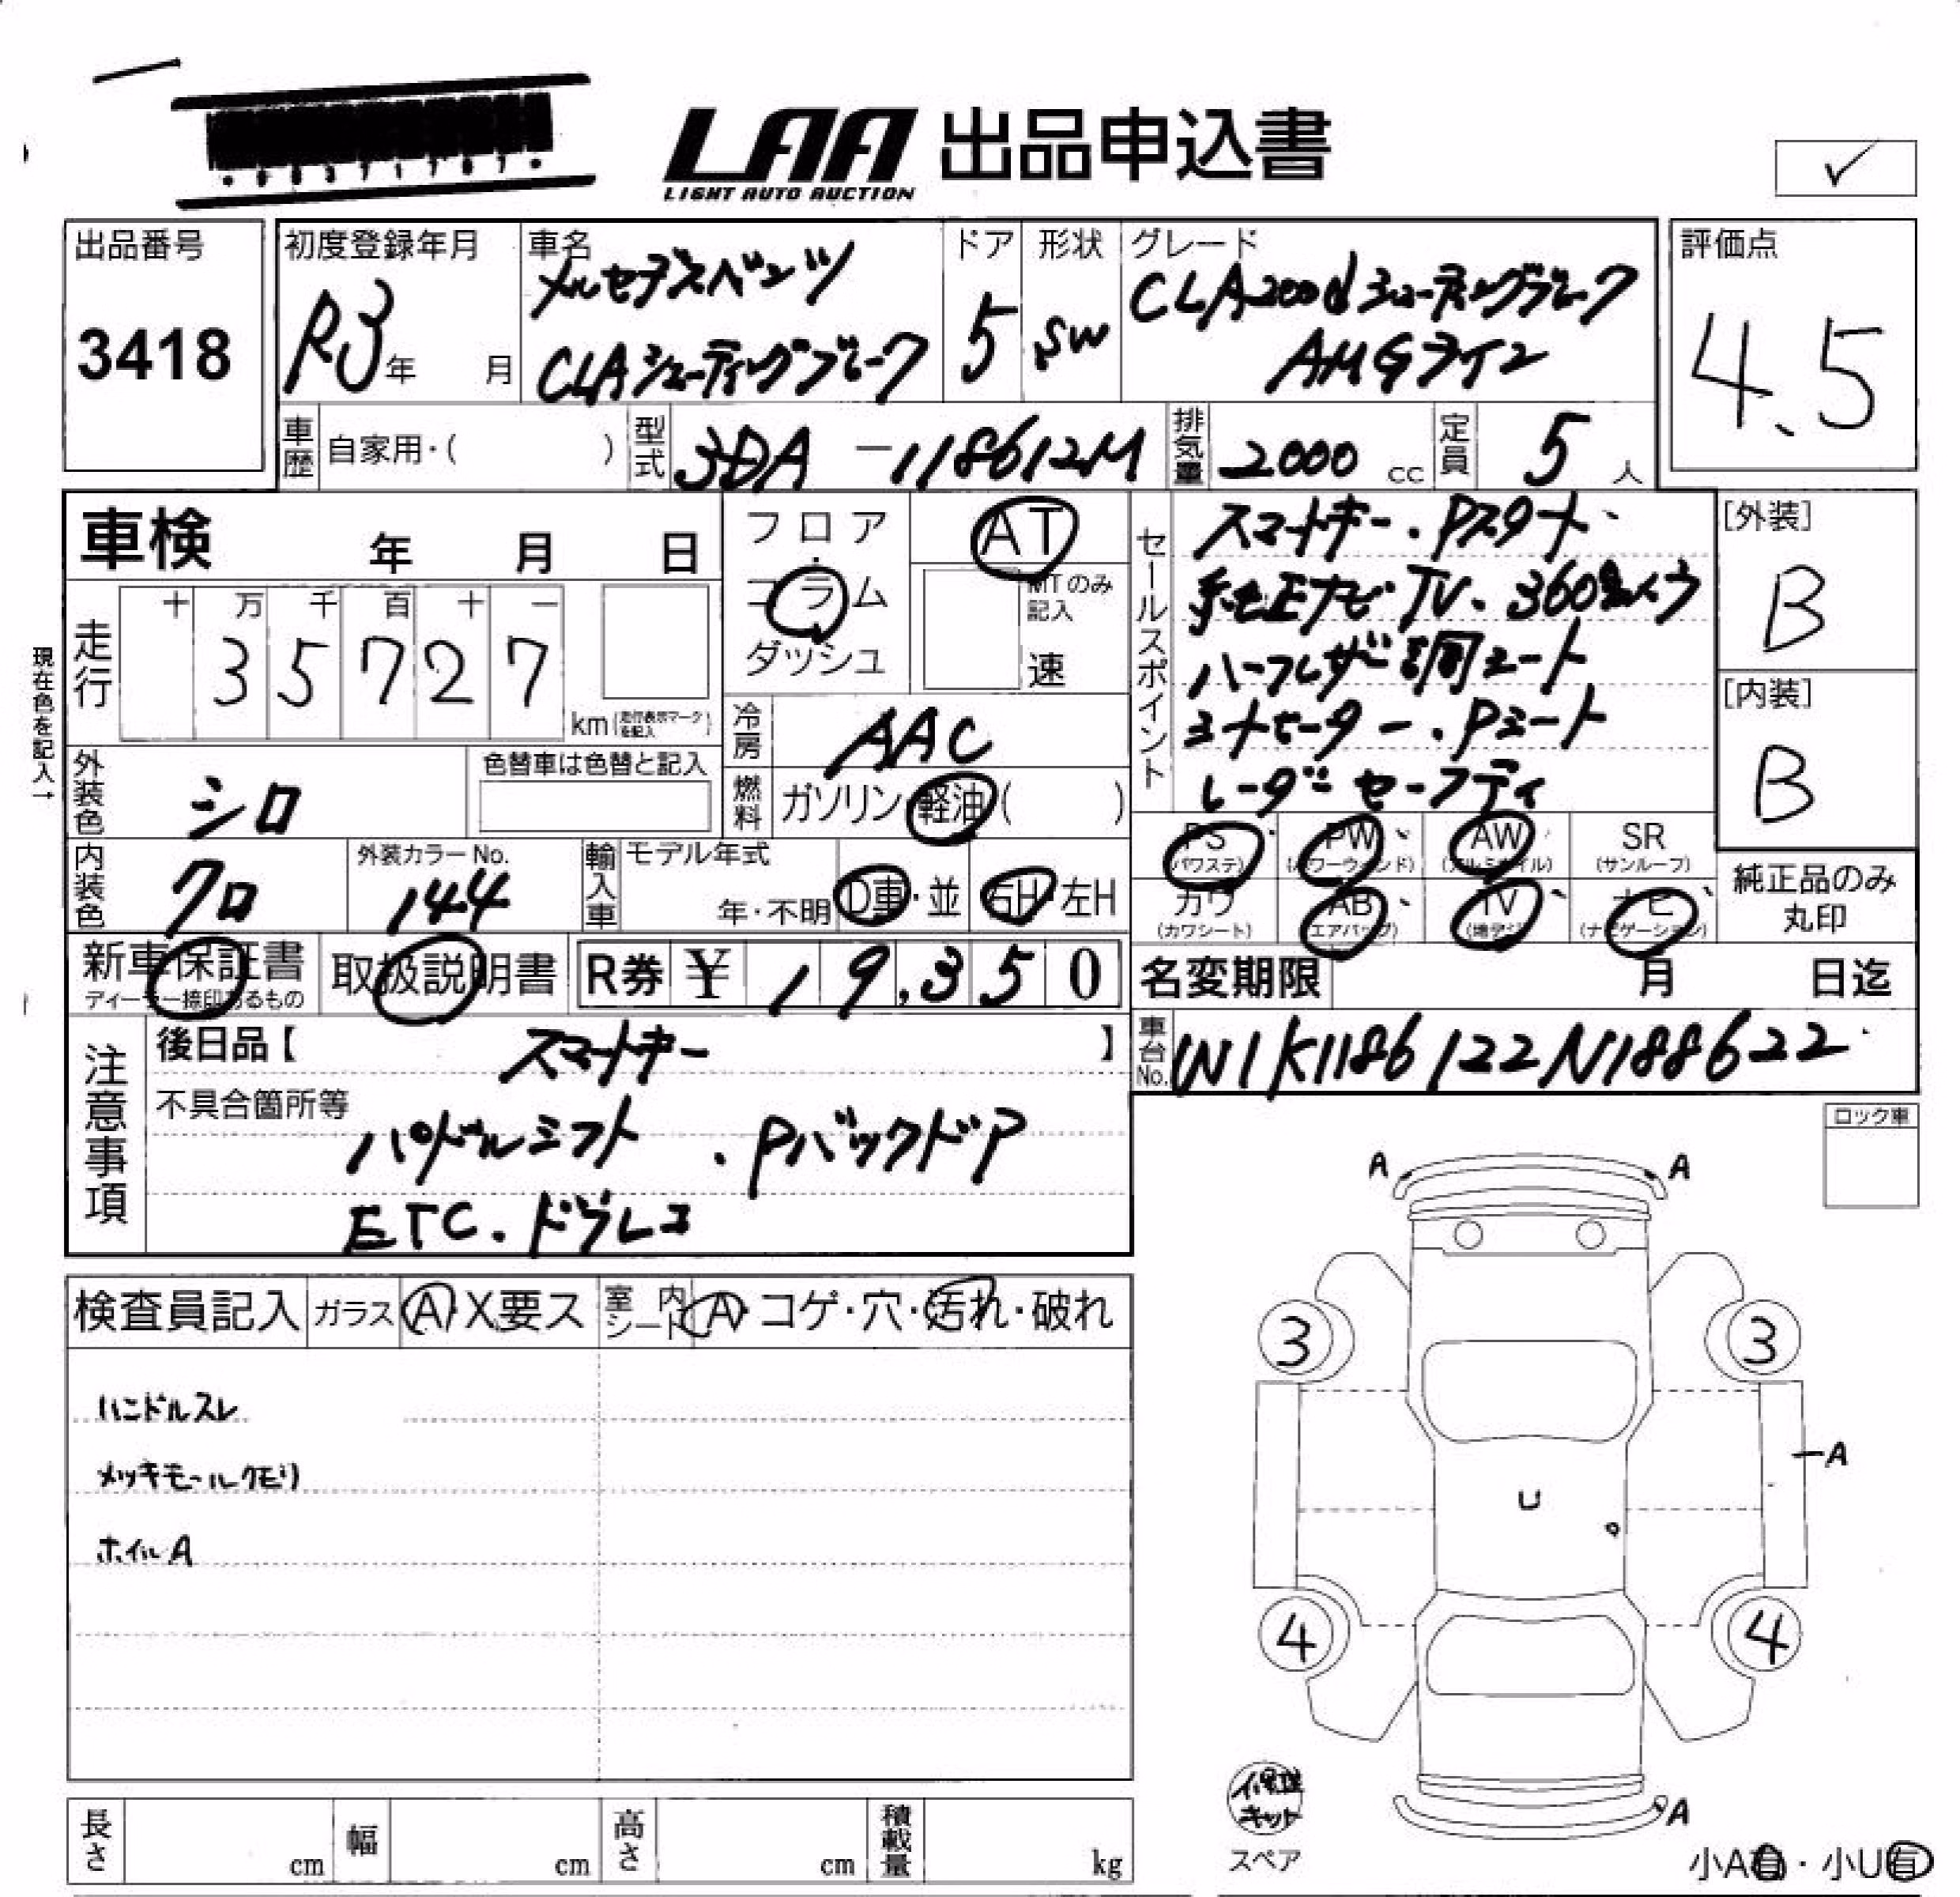 LAA 出品申込書
LIGHT AUTO AUCTION
✓
出品番号
3418
初度登録年月
R3年 月
車名
メルセデスベンツ
CLAシューティングブレーク
ドア
5
形状
SW
グレード
CLA200dシューティングブレーク
AMGライン
評価点
4.5
車歴 自家用・( )
型式 3DA-118612M
排気量 2000 cc
定員 5 人
車検 年 月 日
現在色を記入→
走行
十 万 千 百 十 一
3 5 7 2 7
km(走行表示マークを記入)
フロア
・
コラム
ダッシュ
AT
MTのみ記入
速
冷房 AAC
燃料 ガソリン・軽油( )
外装色 シロ
色替車は色替と記入
内装色 クロ
外装カラーNo.
144
輸入車
モデル年式
年・不明
D車・並
右H・左H
セールスポイント
スマートキー.Pスタート、
純正ナビTV、360°カメラ
ハーフレザー調シート
シートヒーター.Pシート
レーダーセーフティ
[外装]
B
[内装]
B
PS (パワステ)
PW (パワーウィンド)
AW (アルミホイル)
SR (サンルーフ)
カワ (カワシート)
AB (エアバッグ)
TV (地デジ)
ナビ (ナビゲーション)
純正品のみ
丸印
新車保証書
ディーラー捺印あるもの
取扱説明書
R券 ¥ 19,350
名変期限 月 日迄
車台No. W1K1186122N188622
注意事項
後日品【 スマートキー 】
不具合箇所等
パドルシフト .Pバックドア
ETC.ドラレコ
ロック車
検査員記入 ガラス A・X要ス 室内シート A・コゲ・穴・汚れ・破れ
ハンドルスレ
メッキモールクモリ
ホイルA
A A
3 3
A
U
4 4
A
修理
キット
スペア
小A有・小U有
長さ cm 幅 cm 高さ cm 積載量 kg